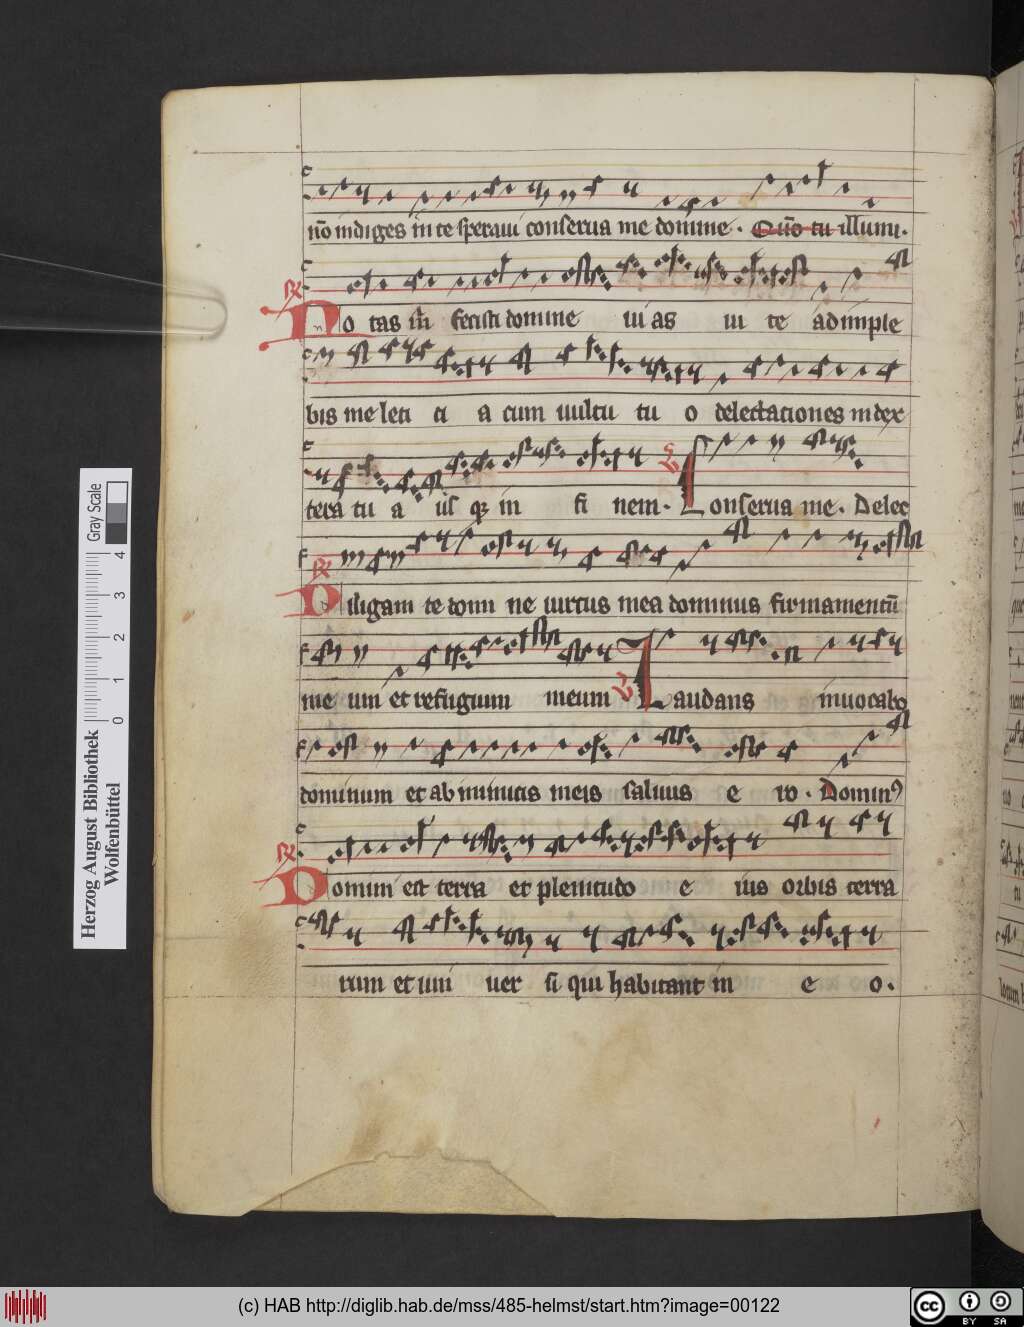 nō indiges in te speraui conserua me domine. Qm̄o tu illumi.
No tas m̄ fecisti domine ui as ui te adimple
bis me leti ci a cum uultu tu o delectationes in dex
tera tu a us qȝ in fi nem. Conserua me. Delec
Diligam te domi ne uirtus mea dominus firmamentū
me um et refugium meum Laudans inuocabo
dominum et ab inimicis meis saluus e ro. Dominꝰ
Domini est terra et plenitudo e ius orbis terra
rum et uni uer si qui habitant in e o.
Gray Scale
0 1 2 3 4
Herzog August Bibliothek
Wolfenbüttel
(c) HAB http://diglib.hab.de/mss/485-helmst/start.htm?image=00122
cc BY SA